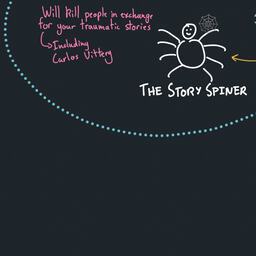 Will kill people in exchange
for your traumatic stories
Including
Carlos Vittery
THE STORY SPINER